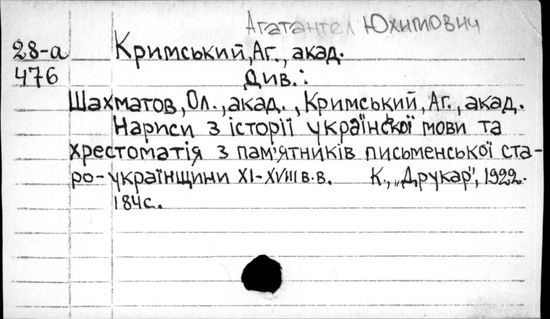 Агатангел Юхимович
28-а Кримський, Аг., акад.
476 Див.:
Шахматов, Ол., акад., Кримський, Аг., акад.
Нариси з історії української мови та
хрестоматія з пам'ятників письменської ста-
ро-українщини XI-XVIII в.в. К., „Друкар", 1922.
184с.